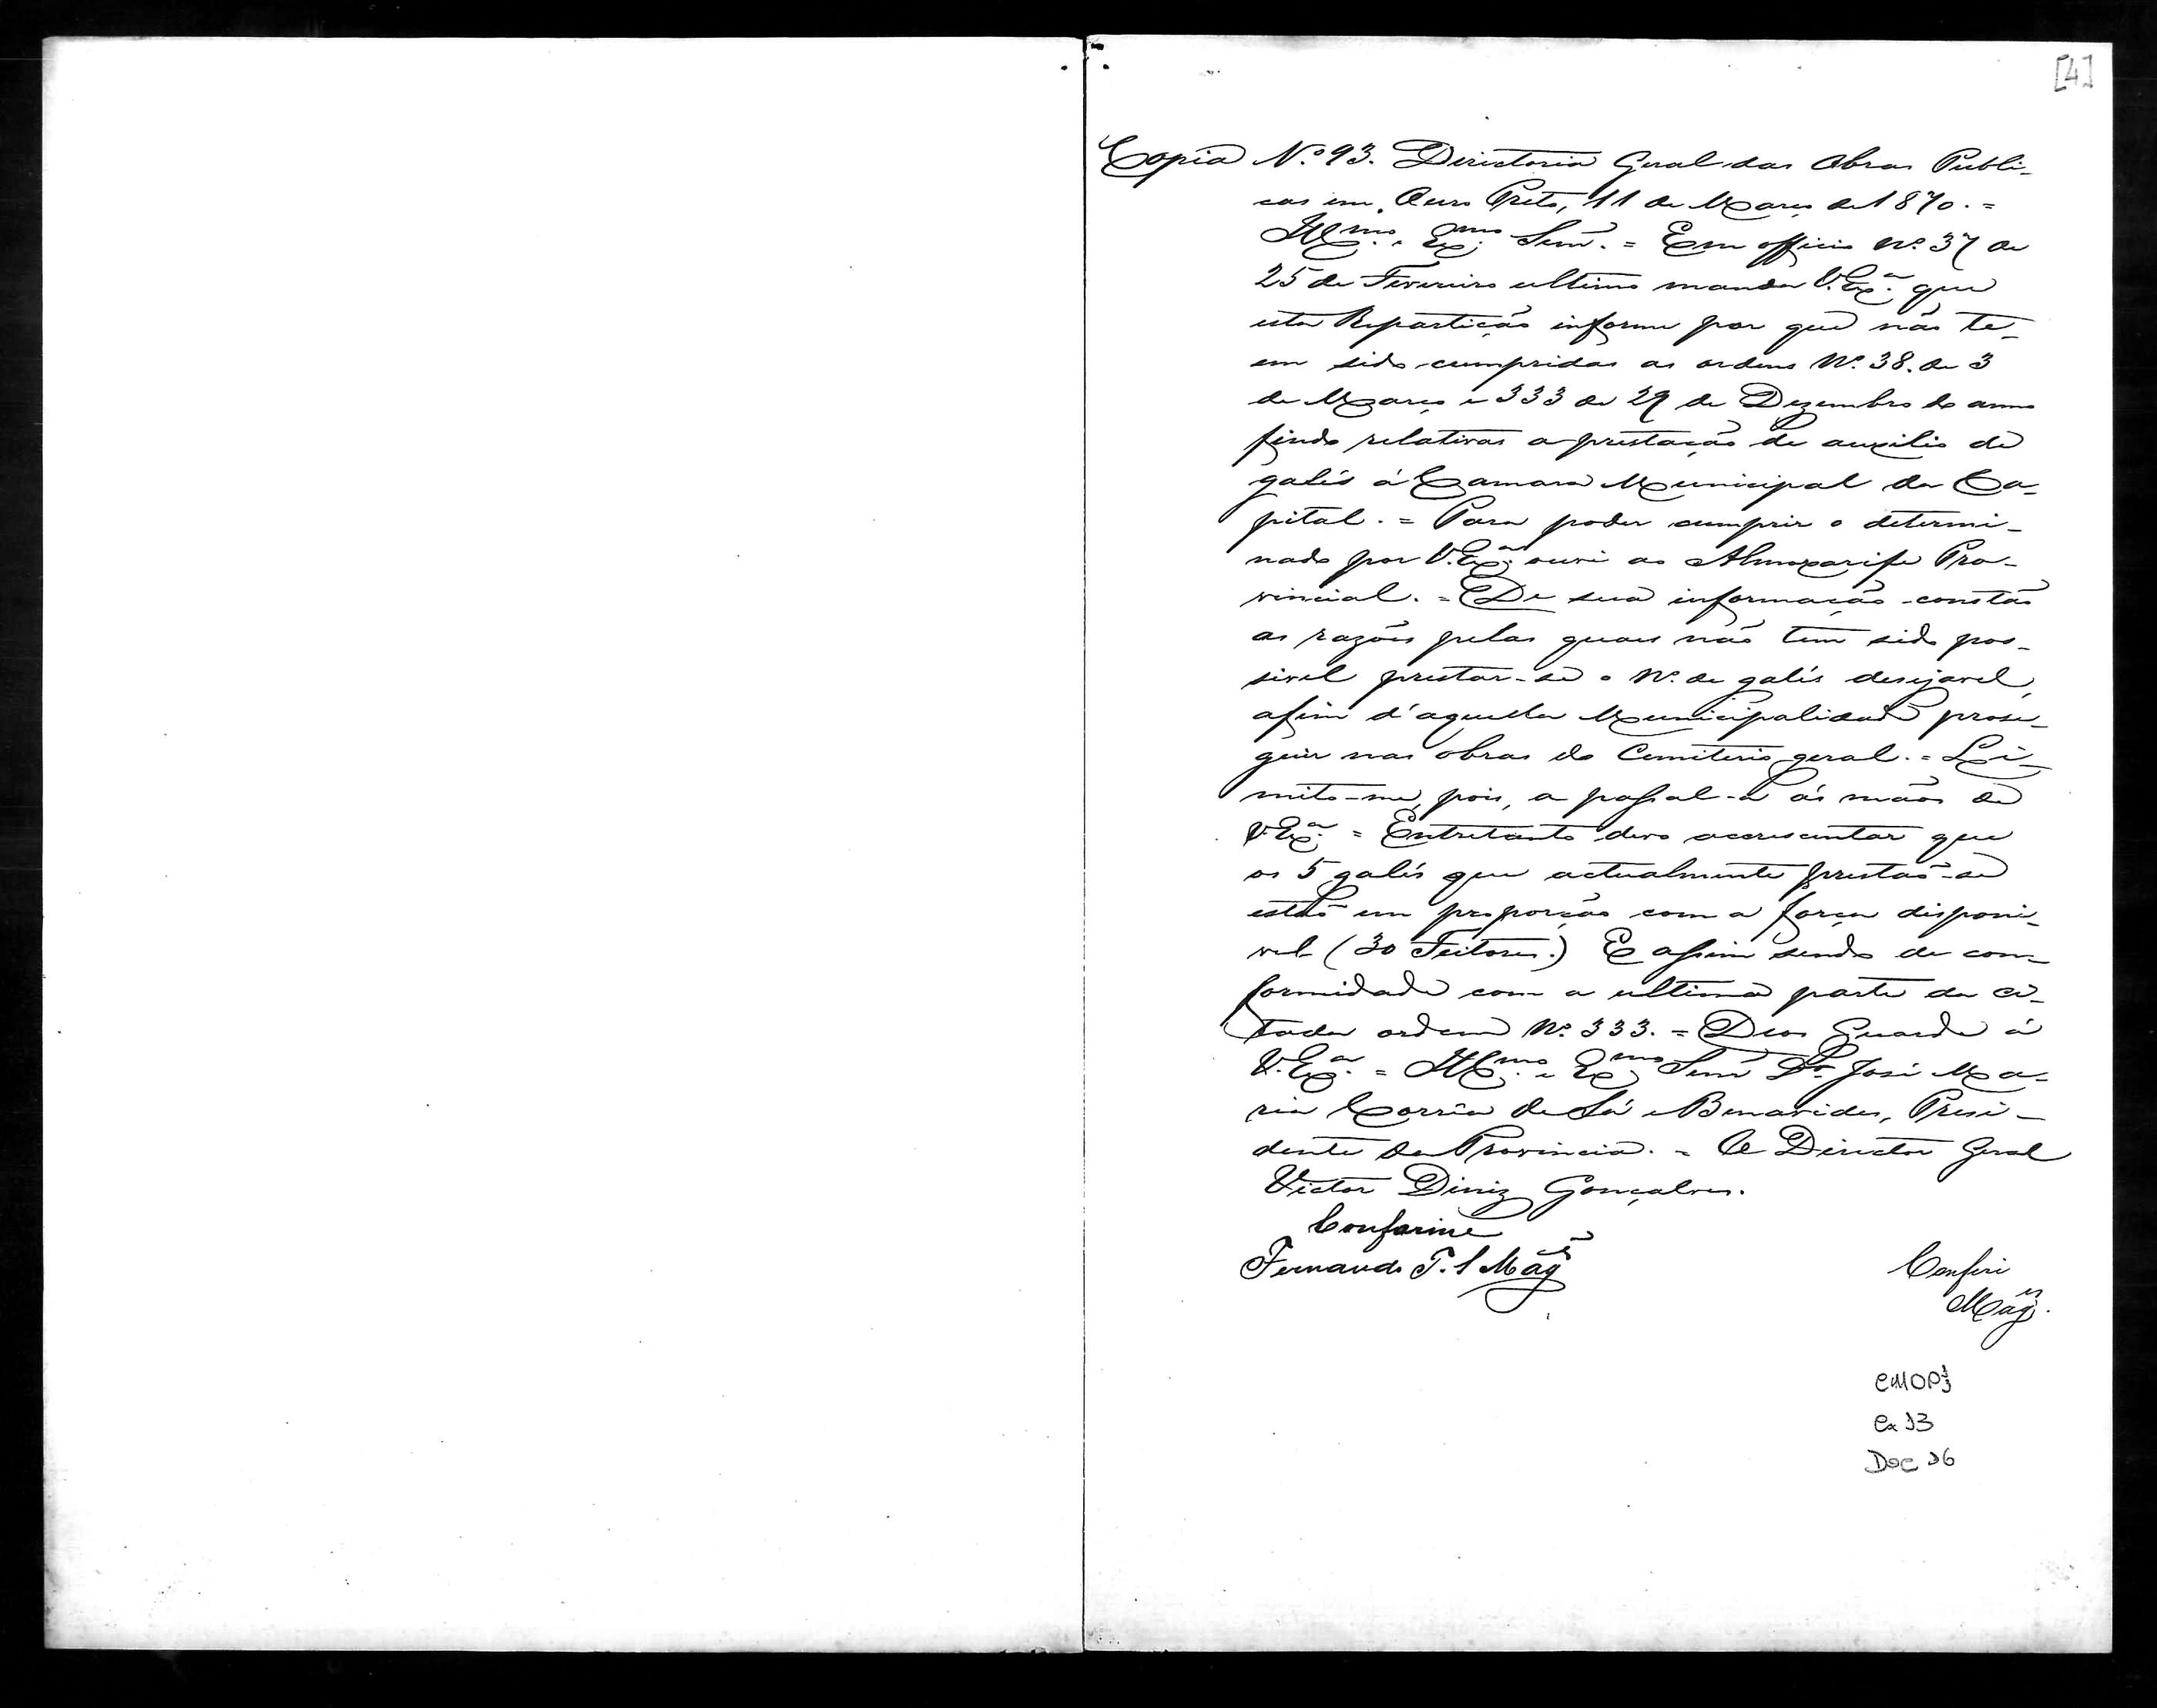 [4]
Copia N.º 93. Directoria Geral das Obras Publi-
cas em Ouro Preto, 11 de Março de 1870. =
Illmo. e Exmo. Senr. = Em officio Nº 37 de
25 de Fevereiro ultimo manda V. Exª. que
esta Repartição informe por que não te-
em sido cumpridas as ordens Nº. 38. de 3
de Março e 333 de 29 de Dezembro do anno
findo relativas a prestação de auxilio de
galés á Camara Municipal da Ca-
pital. = Para poder cumprir o determi-
nado por V. Exª. ouvi ao Almoxarife Pro-
vincial. = De sua informação constão
as razões pelas quaes não tem sido pos-
sivel prestar-se o Nº. de galés desejavel,
afim d'aquella Municipalidade prose-
guir nas obras do Cemiterio geral. = Li-
mito-me, pois, a passal-a ás mãos de
V. Exª. = Entretanto devo accrescentar que
os 5 galés que actualmente prestão-se
estão em proporção com a força disponi-
vel (30 Feitores.) E assim sendo de con-
formidade com a ultima parte da ci-
tada ordem Nº. 333. = Deos Guarde á
V. Exª. = Illmo. e Exmo. Senr Dr. José Ma-
ria Corrêa de Sá e Benavides, Presi-
dente da Provincia. = O Director Geral
Victor Diniz Gonçalves.
Conforme
Fernando T. Mag.es
Conferi
Mag.es
CMOP
Cx 13
Doc